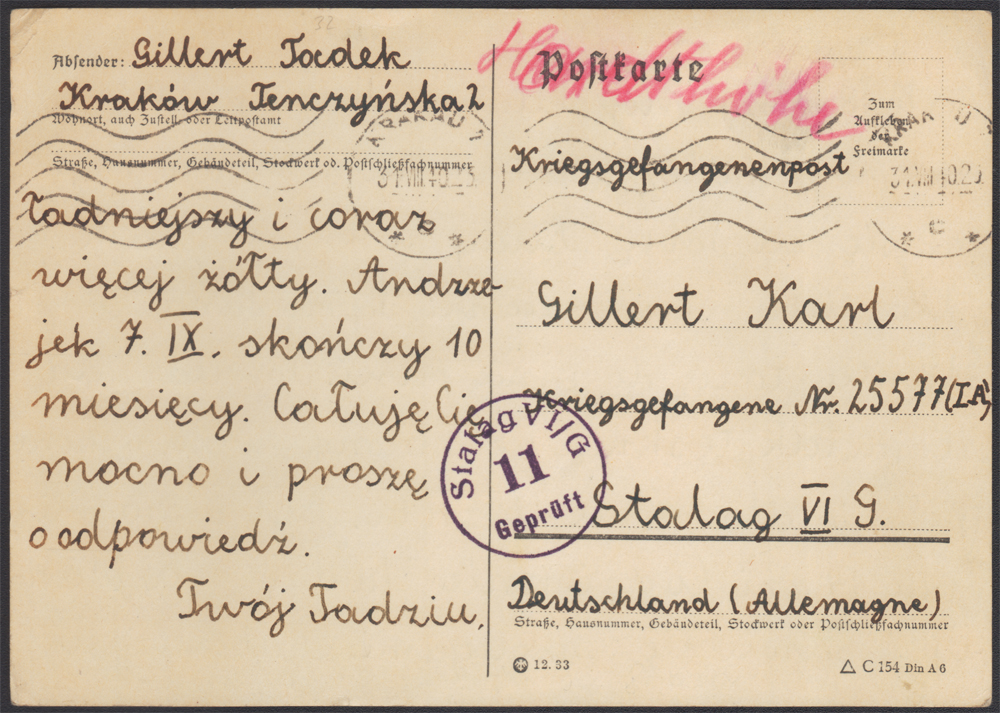 32
Absender: Gillert Tadek
Kraków Tenczyńska 2
Wohnort, auch Zustell- oder Leitpostamt
Straße, Hausnummer, Gebäudeteil, Stockwerk od. Postschließfachnummer
KRAKAU 1
31.VIII.40.20
* C *
ładniejszy i coraz
więcej żółty. Andrze-
jek 7. IX. skończy 10
miesięcy. Całuję Cię
mocno i proszę
o odpowiedź.
Twój Tadziu.
Postkarte
Hardthöhe
Zum
Aufkleben
der
Freimarke
KRAKAU
31.VIII.40.20
* C *
Kriegsgefangenenpost
Gillert Karl
Kriegsgefangene Nr. 25577 (I.A)
Stalag VI/G
11
Geprüft
Stalag VI G.
Deutschland (Allemagne)
Straße, Hausnummer, Gebäudeteil, Stockwerk oder Postschließfachnummer
12. 33
C 154 Din A 6